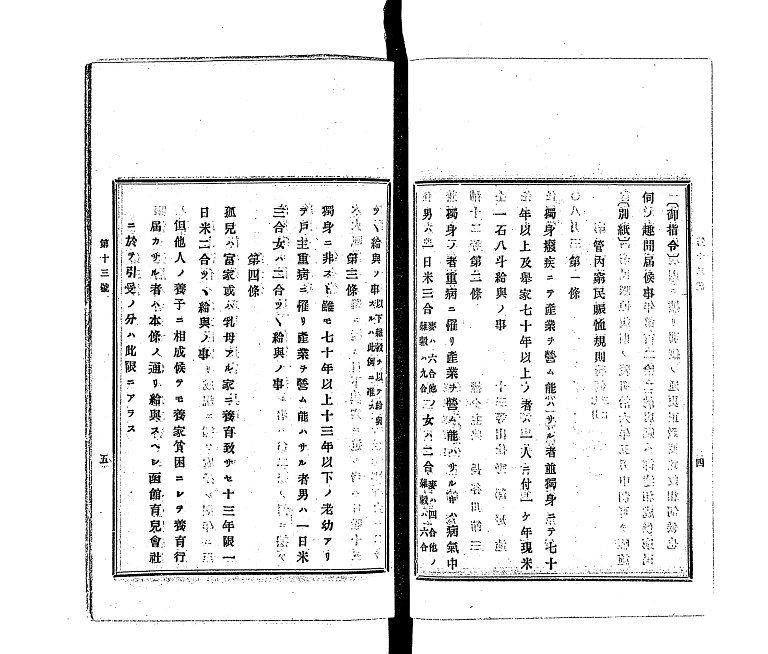 〔御指令〕
伺ノ趣聞届候事
〔別紙〕
管內窮民賑恤規則
第一條
獨身癈疾ニテ產業ヲ營ム能ハサル者並獨身ニテ七十
年以上及擧家七十年以上ノ者ハ一人ニ付一ケ年現米
一石八斗給與ノ事
第二條
獨身ノ者重病ニ罹リ產業ヲ營ム能ハサル年ハ病氣中
男ハ一日米三合 麥ハ六合他ノ雜穀ハ九合 女ハ二合 麥ハ四合他ノ雜穀ハ六合
ツヽ給與ノ事 以下雜穀ヲ以テ給與スルハ此例ニ准ス
第三條
獨身ニ非スト雖モ七十年以上十三年以下ノ老幼アリ
テ戶主重病ニ罹リ產業ヲ營ム能ハサル者男ハ一日米
三合女ハ二合ツヽ給與ノ事
第四條
孤兒ハ富家或ハ乳母アル家ニ養育致サセ十三年限一
日米二合ツヽ給與ノ事
但他人ノ養子ニ相成候テモ養家貧困ニシテ養育行
屆カサル者ハ本條ノ通リ給與スヘシ函館育兒會社
ニ於テ引受ノ分ハ此限ニアラス
四
第十三號
五